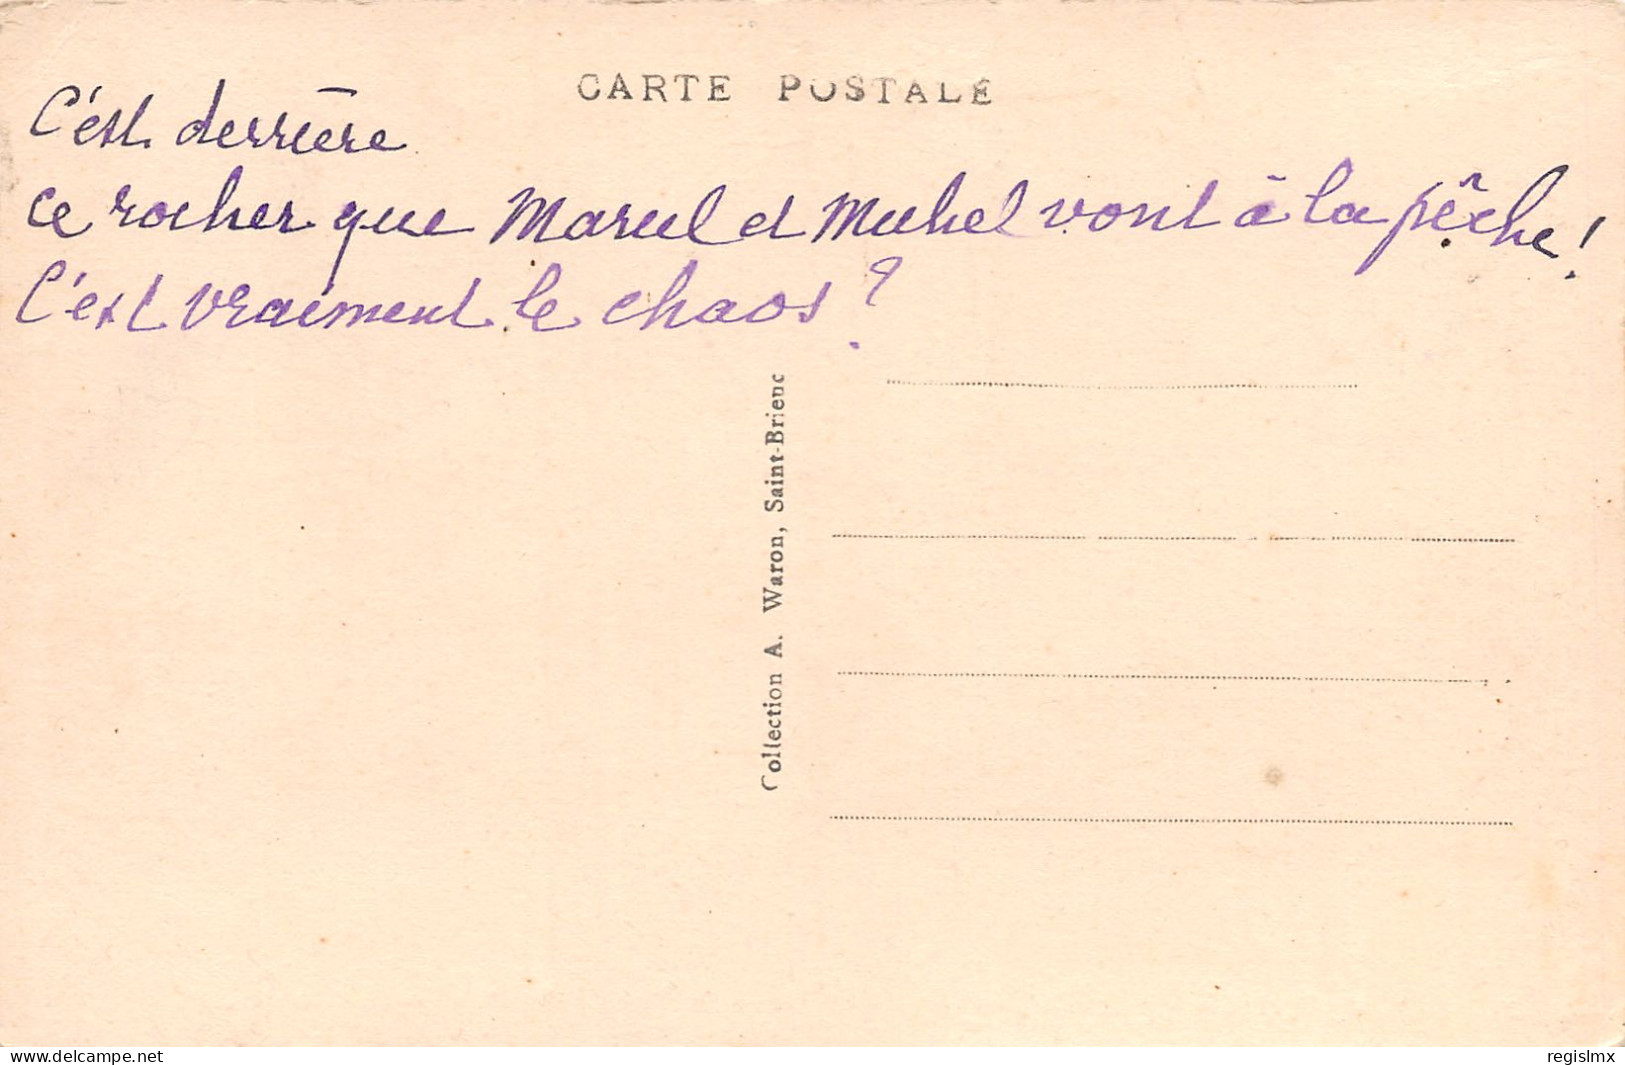 CARTE POSTALE
C'est derrière
ce rocher que Marcel et Michel vont à la pêche !
C'est vraiment le chaos ?
Collection A. Waron, Saint-Brieuc
www.delcampe.net
regislmx